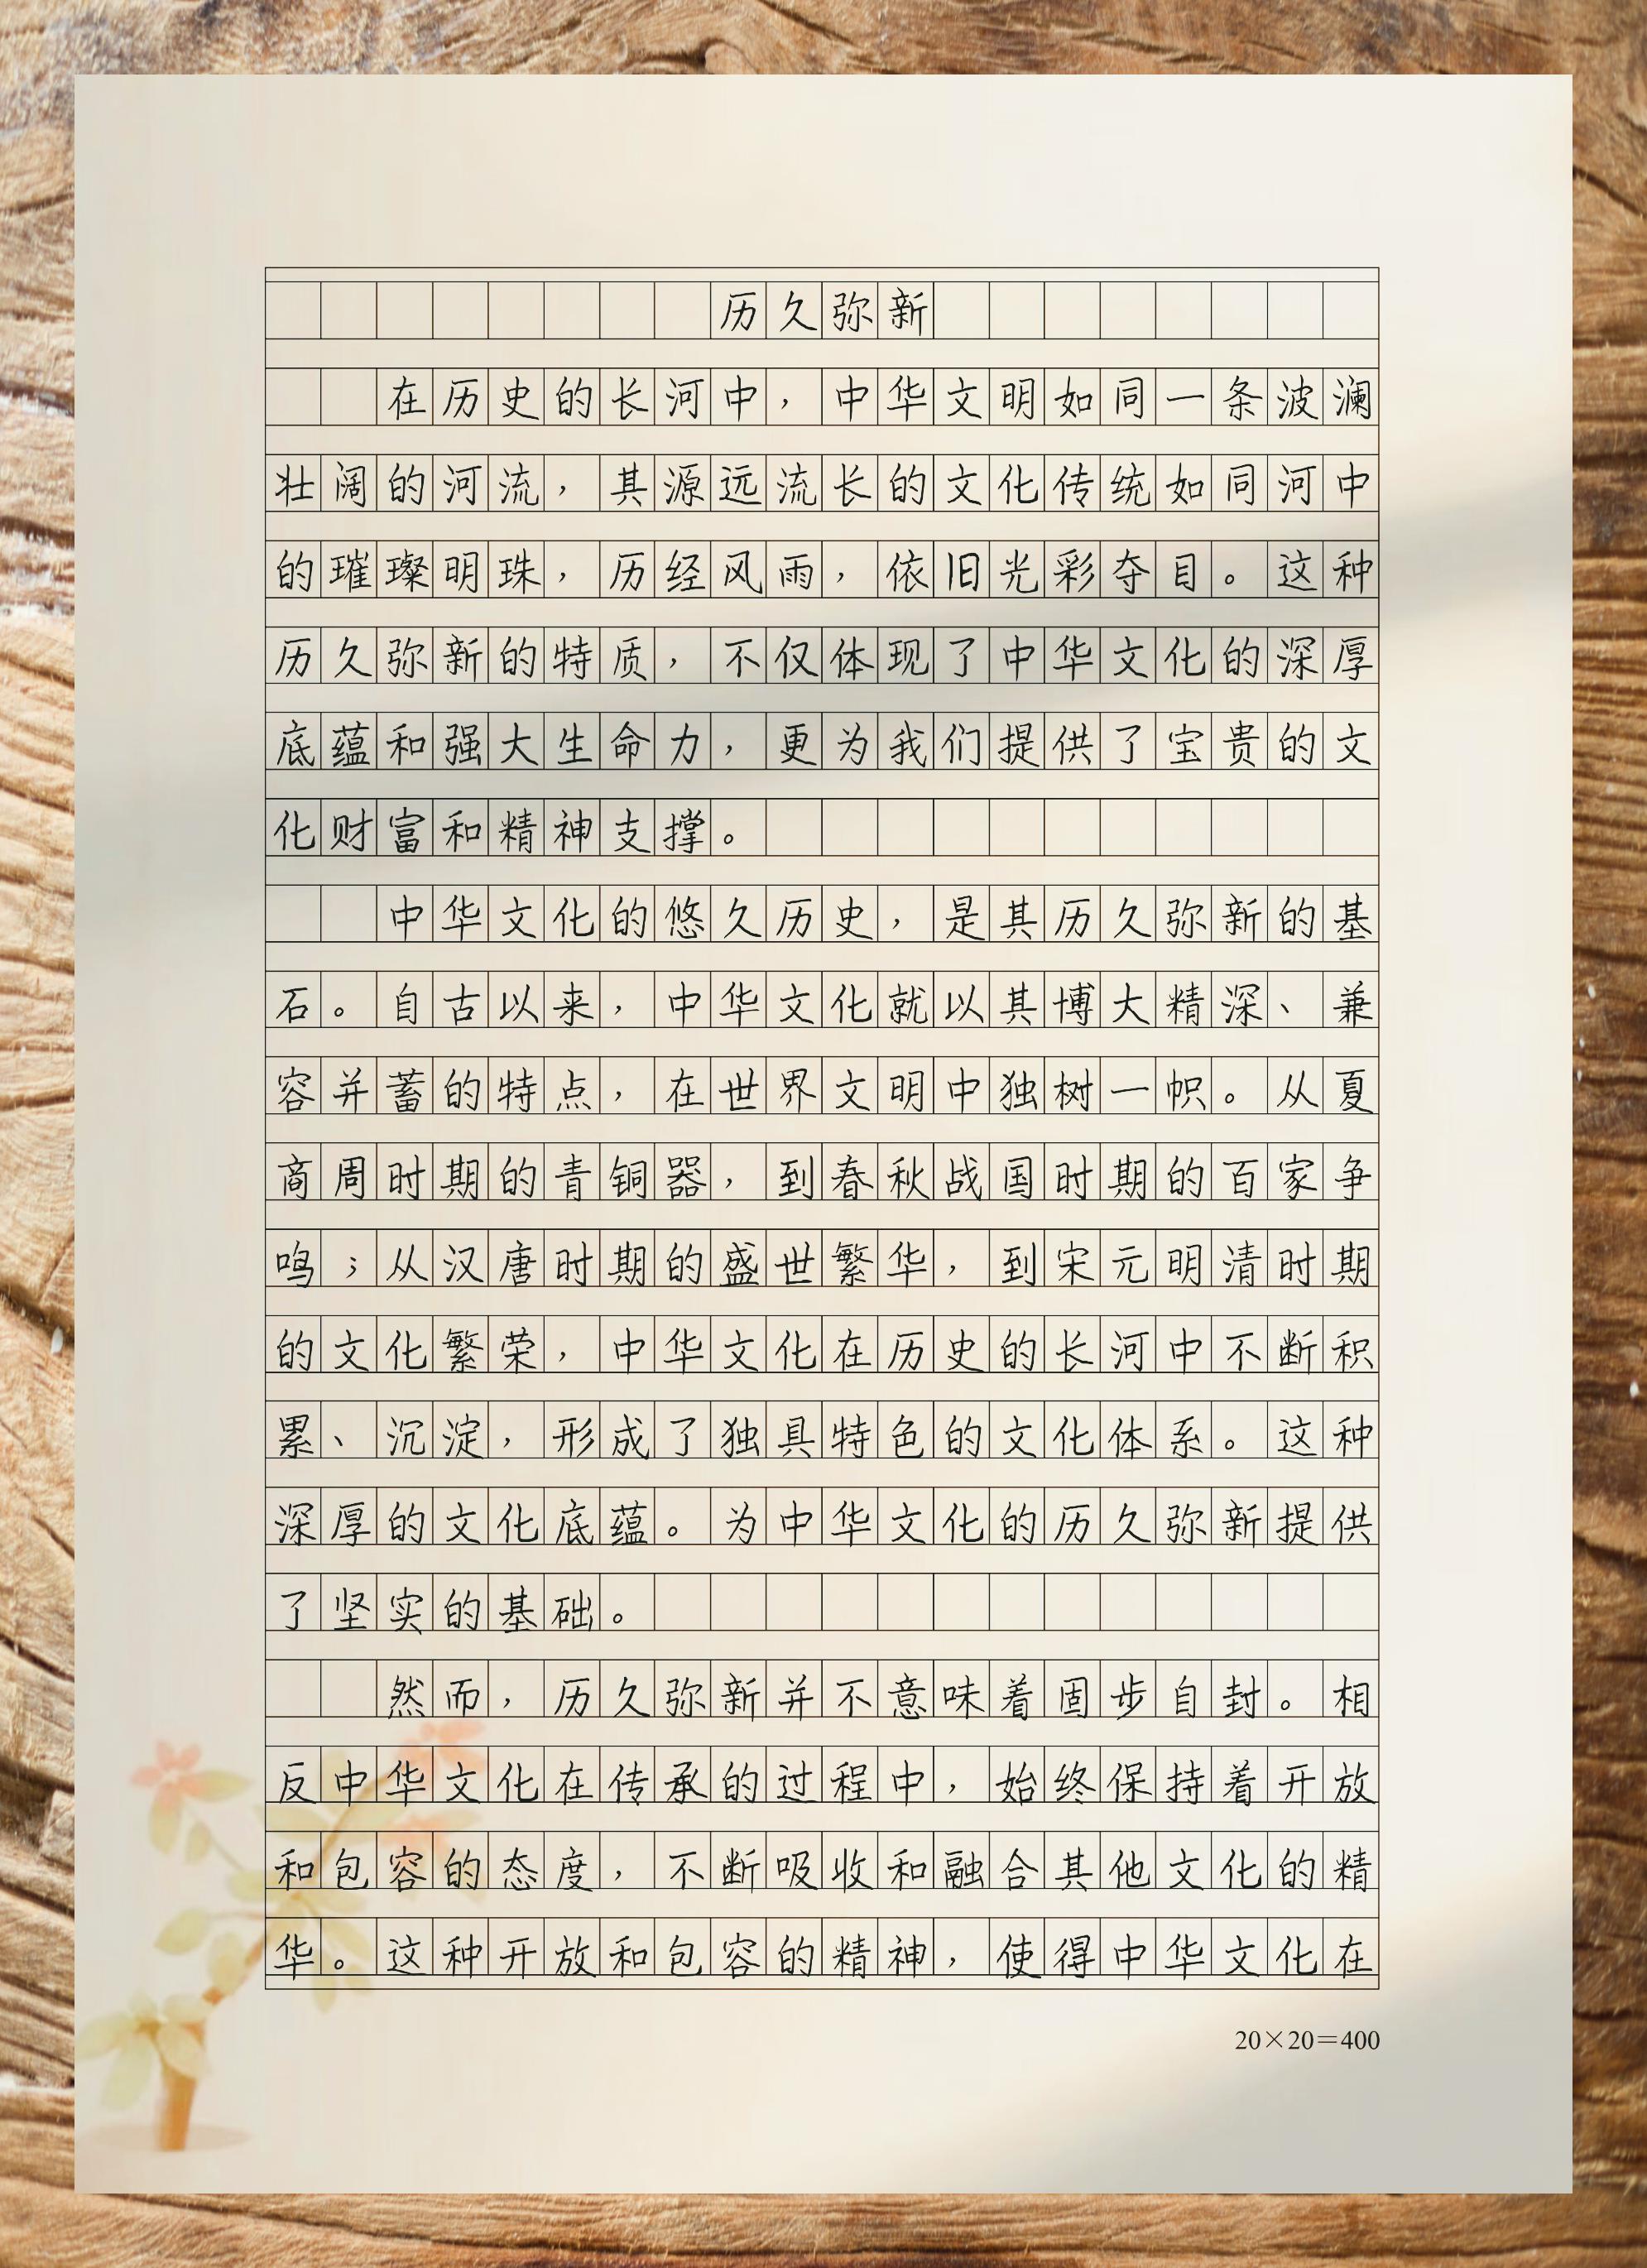 历久弥新
在历史的长河中，中华文明如同一条波澜
壮阔的河流，其源远流长的文化传统如同河中
的璀璨明珠，历经风雨，依旧光彩夺目。这种
历久弥新的特质，不仅体现了中华文化的深厚
底蕴和强大生命力，更为我们提供了宝贵的文
化财富和精神支撑。
中华文化的悠久历史，是其历久弥新的基
石。自古以来，中华文化就以其博大精深、兼
容并蓄的特点，在世界文明中独树一帜。从夏
商周时期的青铜器，到春秋战国时期的百家争
鸣；从汉唐时期的盛世繁华，到宋元明清时期
的文化繁荣，中华文化在历史的长河中不断积
累、沉淀，形成了独具特色的文化体系。这种
深厚的文化底蕴。为中华文化的历久弥新提供
了坚实的基础。
然而，历久弥新并不意味着固步自封。相
反中华文化在传承的过程中，始终保持着开放
和包容的态度，不断吸收和融合其他文化的精
华。这种开放和包容的精神，使得中华文化在
20×20=400